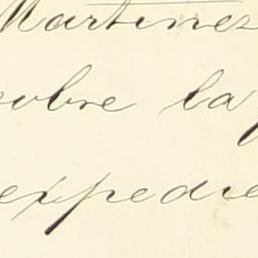 Martinez
sobre la
expedie